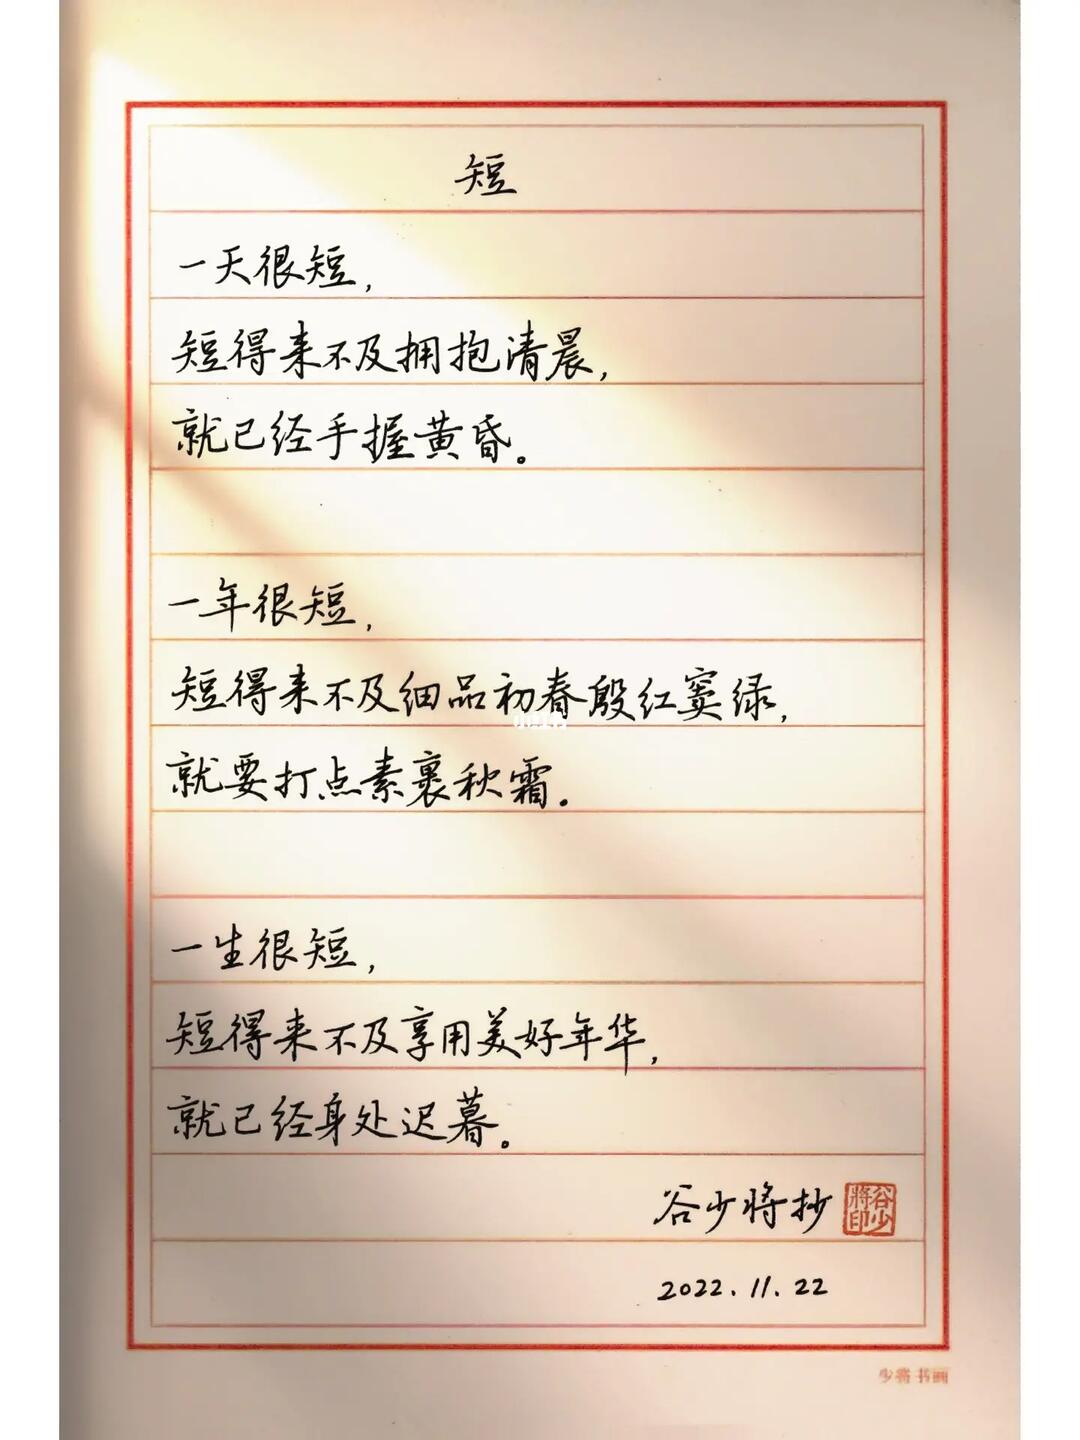 短
一天很短，
短得来不及拥抱清晨，
就已经手握黄昏。
一年很短，
短得来不及细品初春殷红窦绿，
就要打点素裹秋霜。
一生很短，
短得来不及享用美好年华，
就已经身处迟暮。
谷少将抄
谷少將印
2022.11.22
少将书画